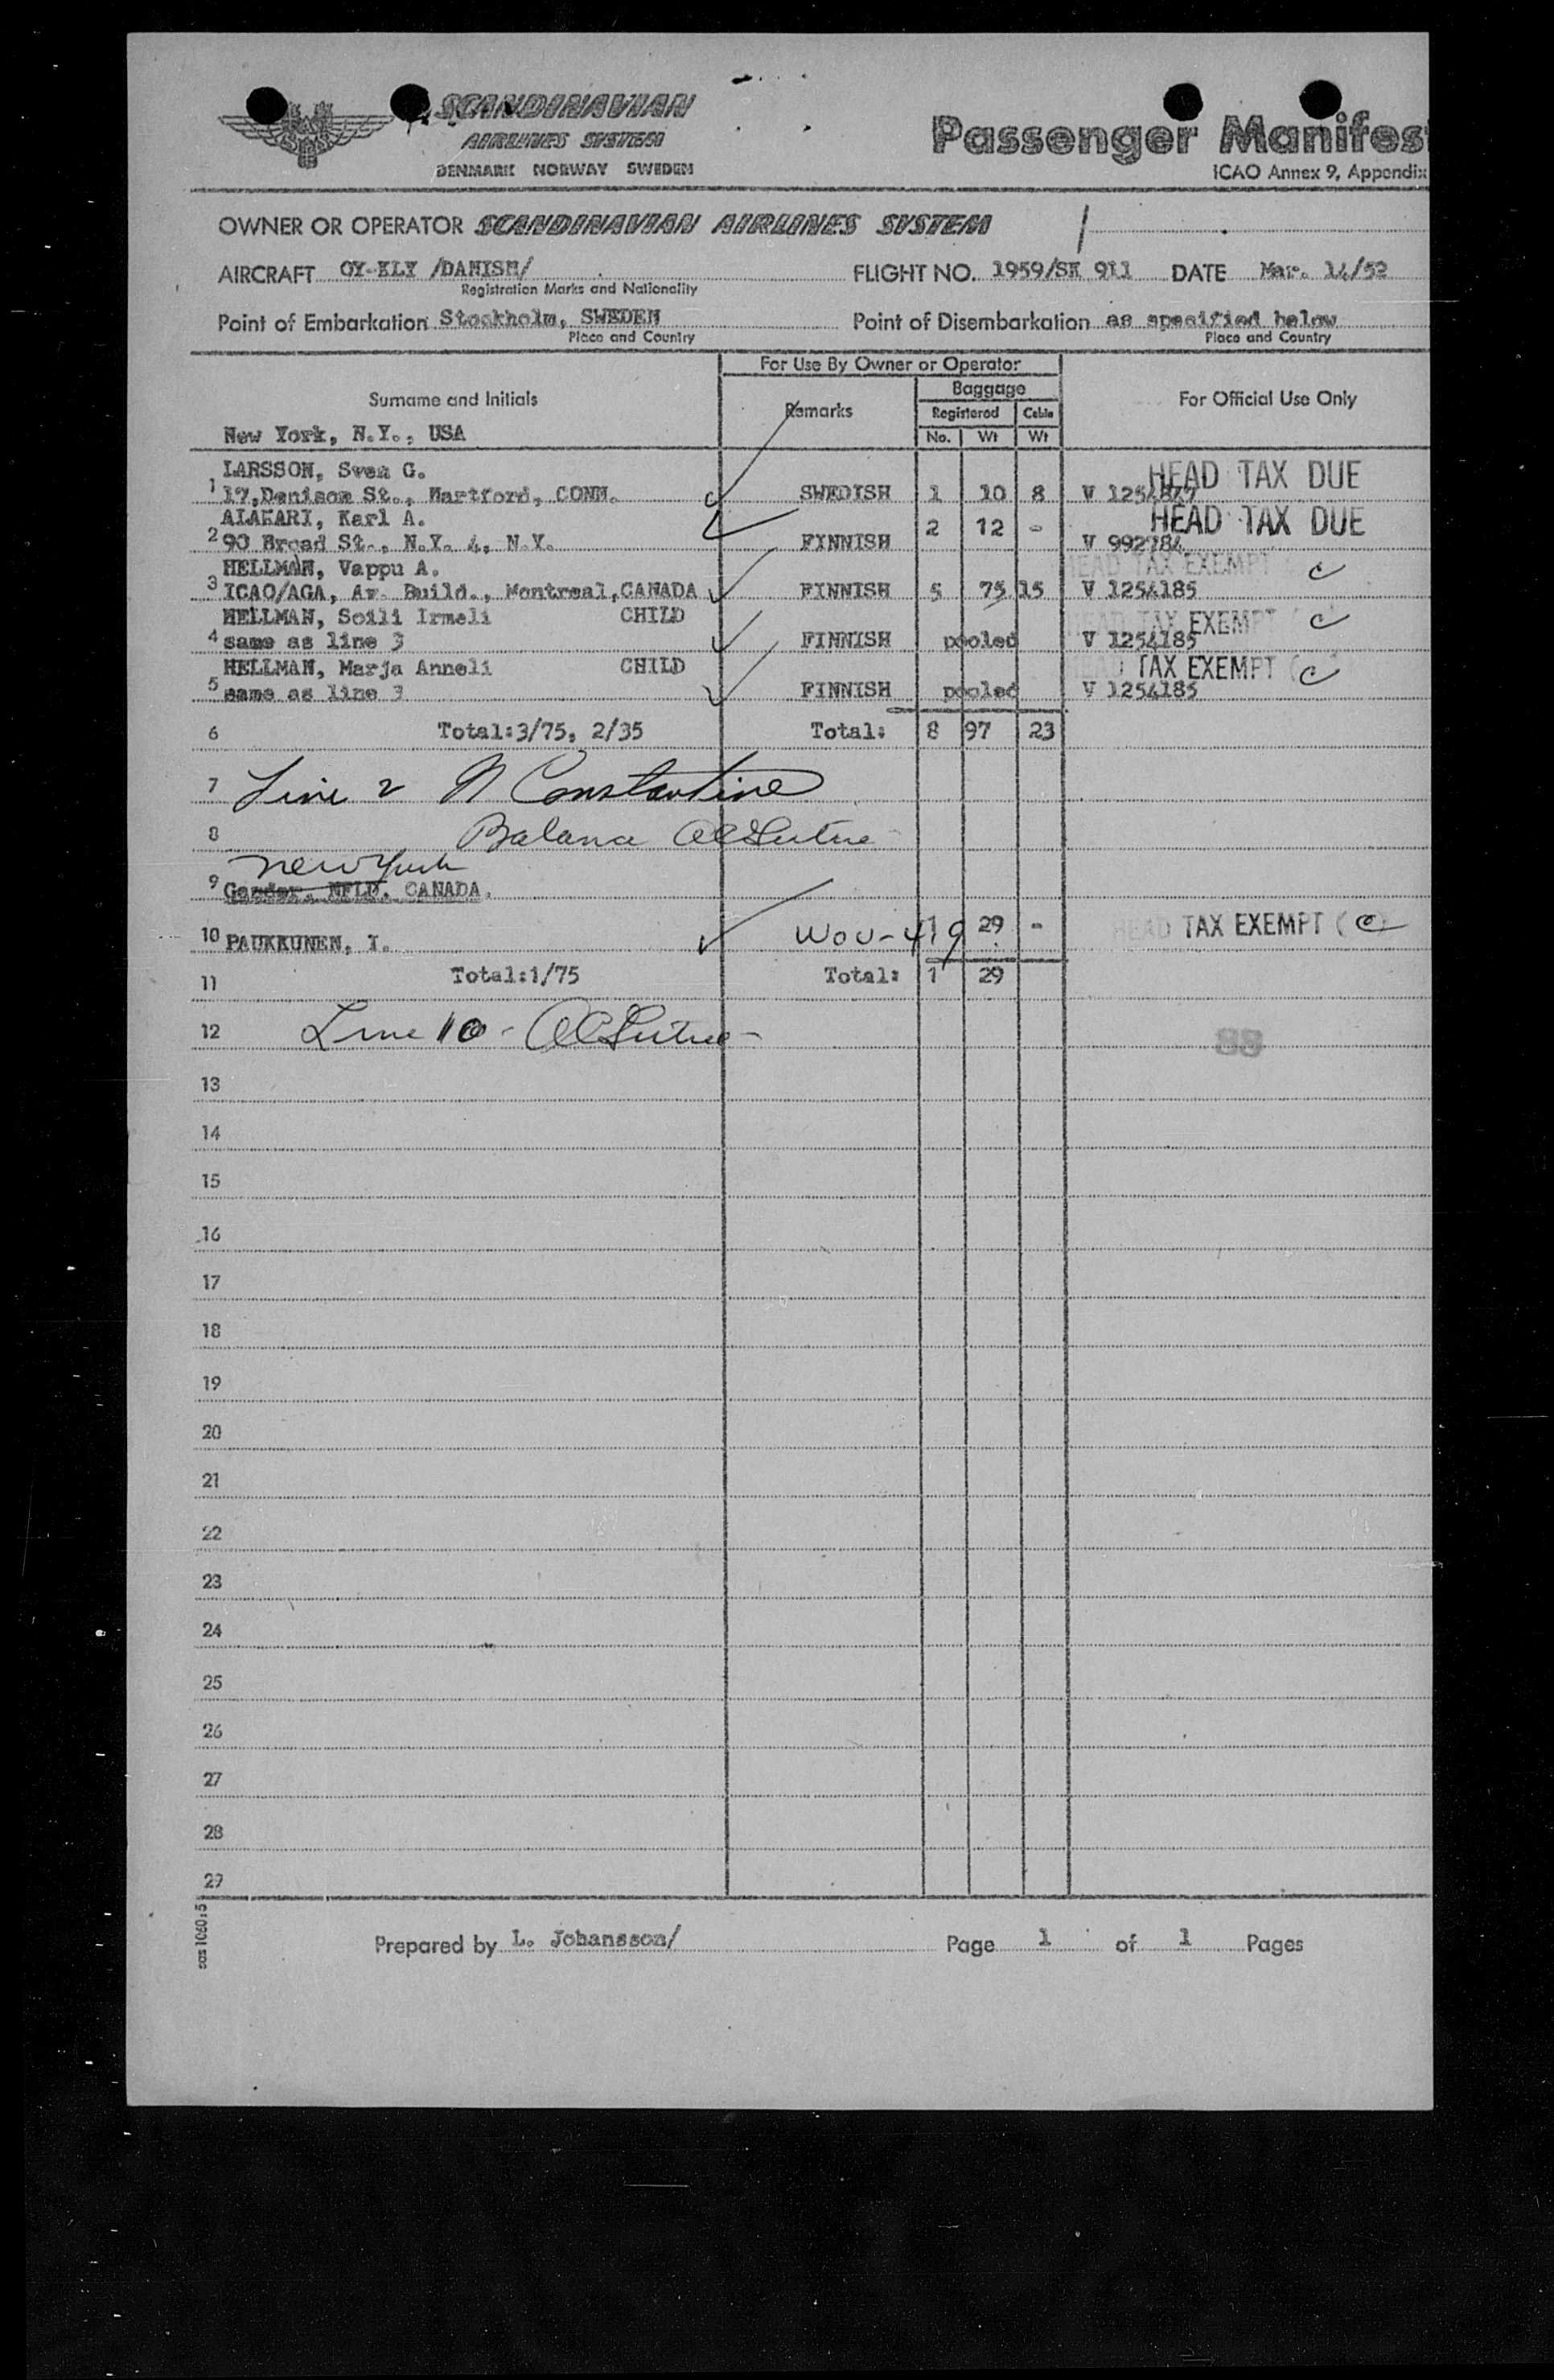 SCANDINAVIAN
AIRLINES SYSTEM
DENMARK NORWAY SWEDEN
Passenger Manifes
ICAO Annex 9, Appendix
OWNER OR OPERATOR SCANDINAVIAN AIRLINES SYSTEM
AIRCRAFT OY-KLY /DANISH/ FLIGHT NO. 1959/SK 911 DATE Mar. 14/52
Registration Marks and Nationality
Point of Embarkation Stockholm, SWEDEN Point of Disembarkation as specified below
Place and Country Place and Country
For Use By Owner or Operator
Surname and Initials Remarks Baggage For Official Use Only
Registered Cabin
New York, N.Y., USA No. Wt Wt
LARSSON, Sven G. HEAD TAX DUE
1 17,Denison St., Hartford, CONN. SWEDISH 1 10 8 V 1254847
ALAKARI, Karl A. 2 12 - HEAD TAX DUE
2 90 Broad St., N.Y. 4, N.Y. FINNISH V 992784
HELLMAN, Vappu A. HEAD TAX EXEMPT C
3 ICAO/AGA, Av. Build., Montreal,CANADA FINNISH 5 75 15 V 1254185
HELLMAN, Soili Irmeli CHILD HEAD TAX EXEMPT C
4 same as line 3 FINNISH pooled V 1254185
HELLMAN, Marja Anneli CHILD TAX EXEMPT (C
5 same as line 3 FINNISH pooled V 1254185
6 Total:3/75, 2/35 Total: 8 97 23
7 Line 2 N Constantine
8 Balance
New York
9 Gander, NFLD. CANADA.
10 PAUKKUNEN, I. WOU-419 29 - HEAD TAX EXEMPT (C)
11 Total:1/75 Total: 1 29
12 Line 10 -
89
13
14
15
16
17
18
19
20
21
22
23
24
25
26
27
28
29
sas 1060:5
Prepared by L. Johansson/ Page 1 of 1 Pages